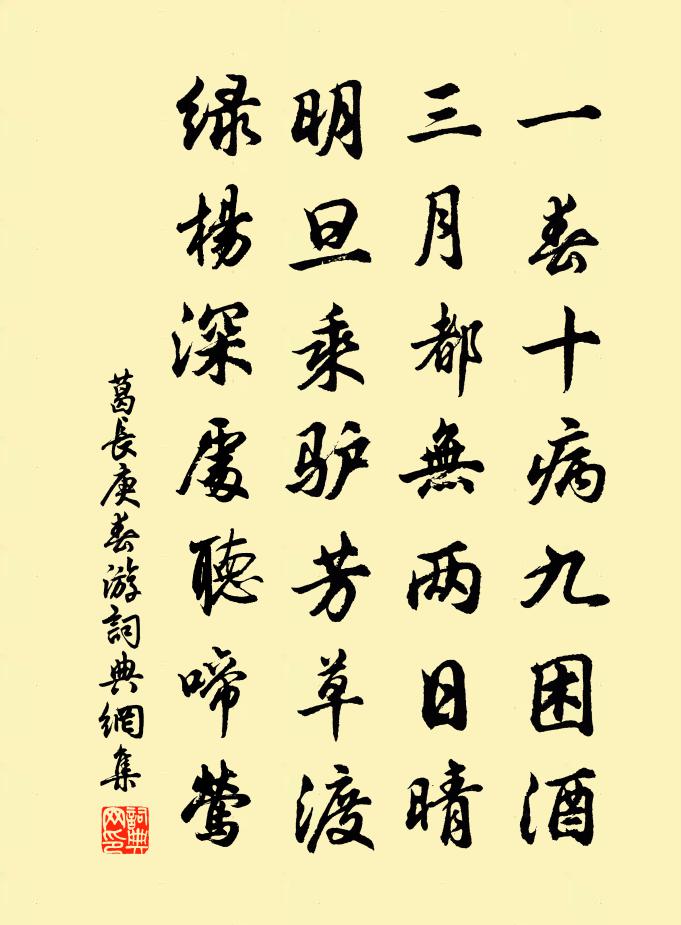 一春十病九困酒
三月都無两日晴
明旦乘驴芳草渡
绿楊深處聽啼鶯
葛長庚春游詞典網集
詞典网印